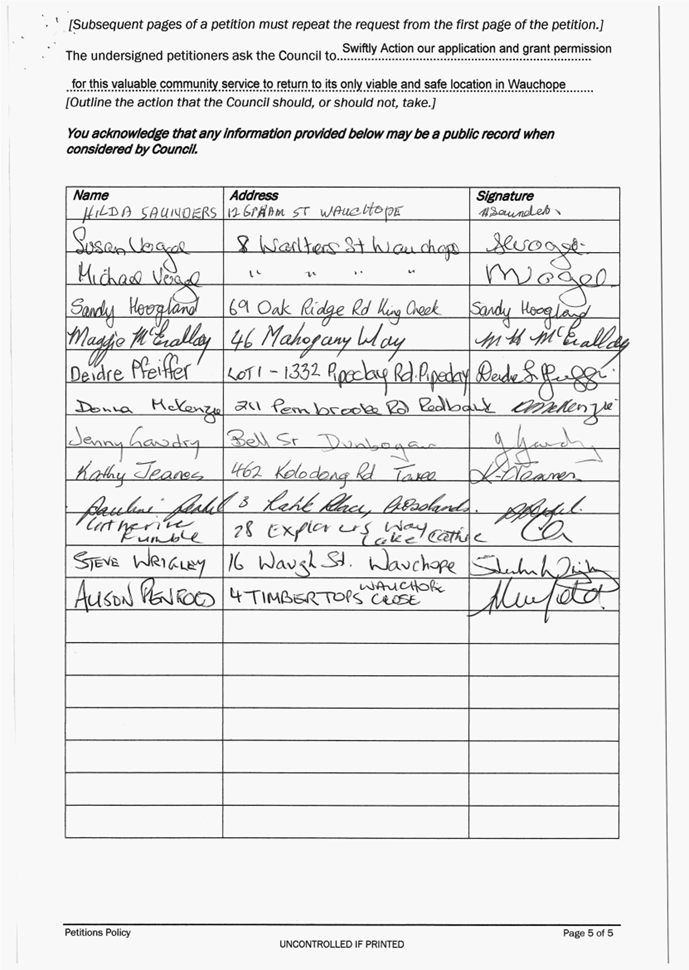 [Subsequent pages of a petition must repeat the request from the first page of the petition.]
The undersigned petitioners ask the Council to Swiftly Action our application and grant permission
for this valuable community service to return to its only viable and safe location in Wauchope
[Outline the action that the Council should, or should not, take.]
You acknowledge that any information provided below may be a public record when
considered by Council.
Name Address Signature
HILDA SAUNDERS 12 ST WAUCHOPE HSaunders
Susan Vogel 8 Walters St Wauchope SVogel
Michael Vogel " " " " MVogel
Sandy Hoogland 69 Oak Ridge Rd King Creek Sandy Hoogland
Maggie 46 Mahogany Way
Deidre Pfeiffer LOT 1 - 1332 Pipeclay Rd. Pipeclay
Donna McKenzie 211 Pembrooke Rd Redbank DMcKenzie
Jenny Gawdry Bell St Dunbogan
Kathy Jeanes 462 Kolodong Rd Taree K-Jeanes
Pauline 3
Catherine Rumble 28 Explorers Way Lake Cathie
STEVE WRIGLEY 16 Waugh St. Wauchope
ALISON PENROD 4 TIMBERTOPS CLOSE WAUCHOPE
Petitions Policy Page 5 of 5
UNCONTROLLED IF PRINTED